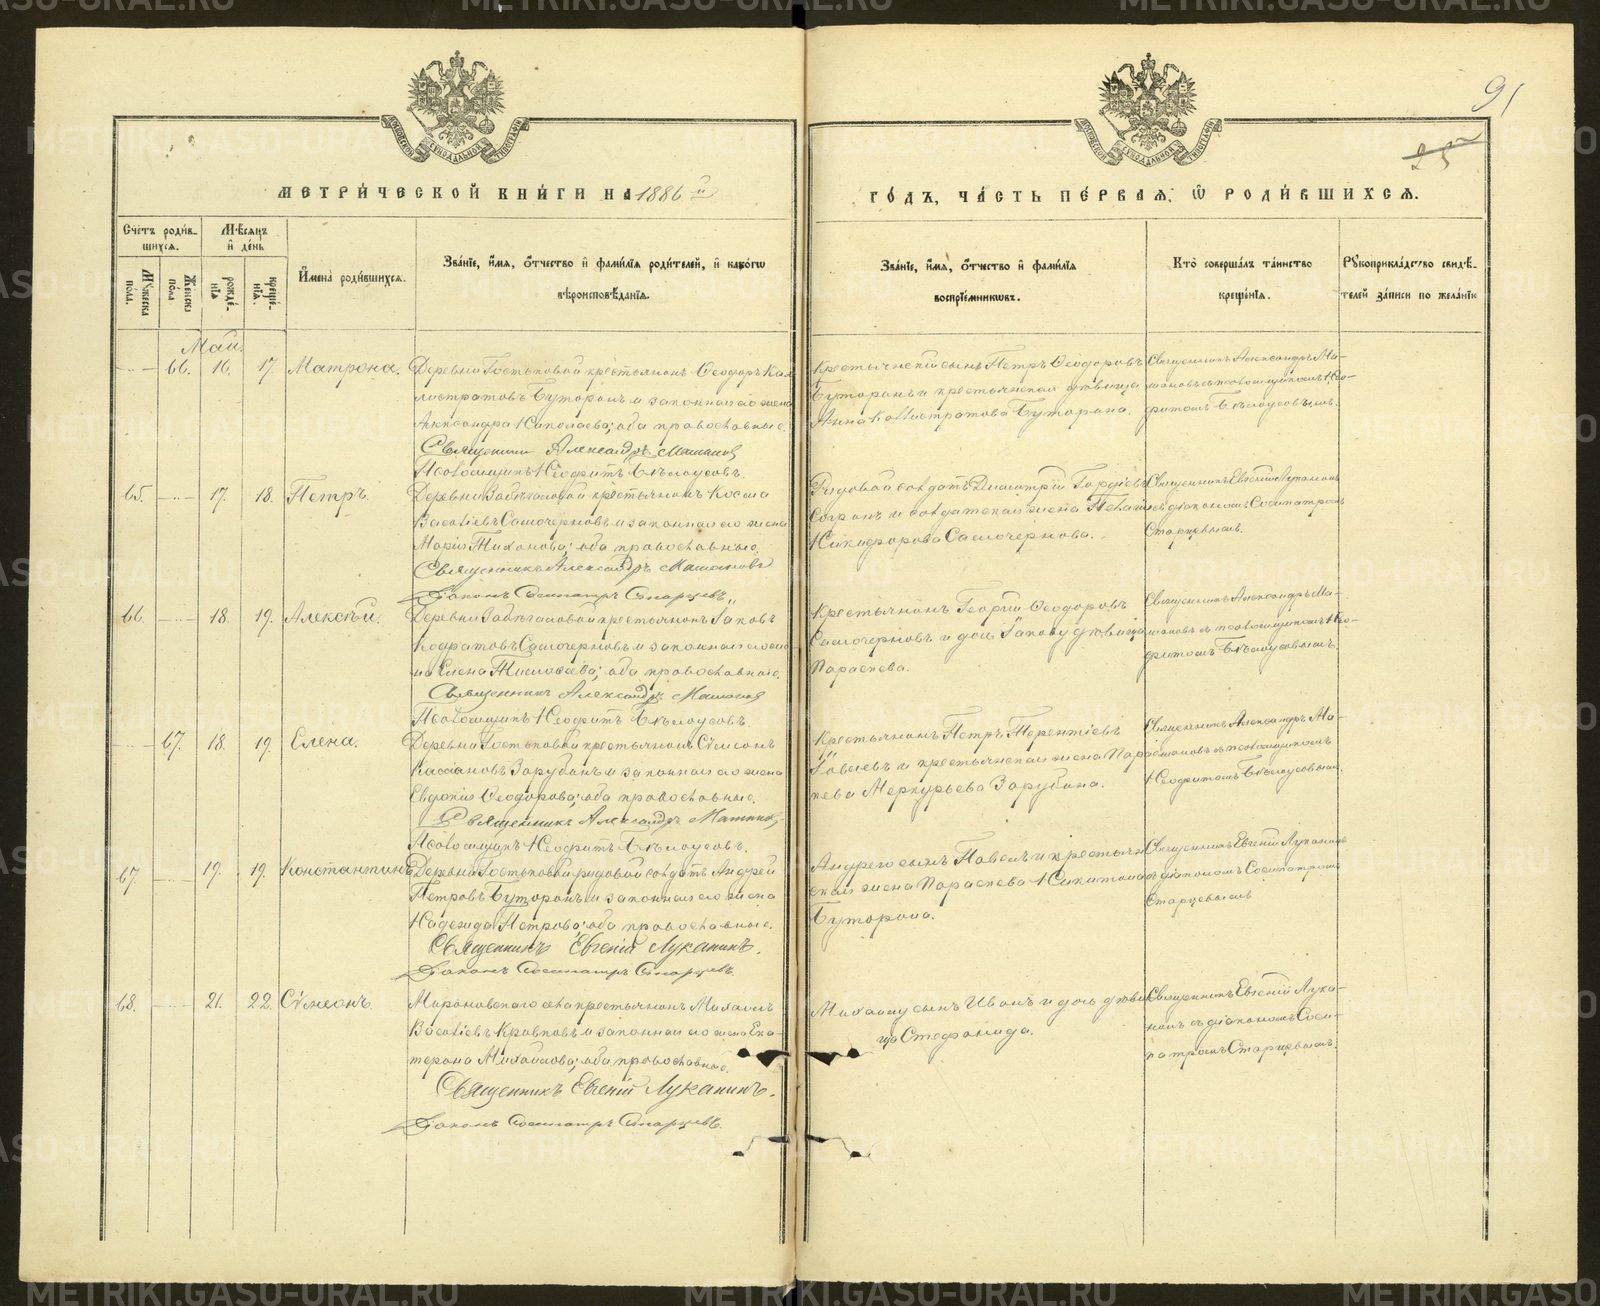 91
25
МЕТРИЧЕСКОЙ КНИГИ НА 1886й
ГОДЪ, ЧАСТЬ ПЕРВАЯ, Ѡ РОДИВШИХСЯ.
Счетъ родив-
шихся.
Мужеска пола.
Женска пола.
Мѣсяцъ и день
рожденія
крещенія.
Имена родившихся.
Званіе, имя, отчество и фамилія родителей, и какогѡ
вѣроисповѣданія.
Званіе, имя, отчество и фамилія
воспріемникѡвъ.
Кто совершалъ таинство
крещенія.
Рукоприкладство свидѣ-
телей записи по желанію
Май.
66. 16. 17. Матрона.
Деревни Гостьковой крестьянинъ Ѳеодоръ Кал
листратовъ Буторинъ и законная его жена
Александра Николаева; оба православные.
Священникъ Александръ Мамановъ
Псаломщикъ Неофитъ Бѣлоусовъ.
Крестьянскій сынъ Петръ Ѳеодоровъ
Буторинъ и крестьянская дѣвица
Анна Каллистратова Буторина.
Священникъ Александръ Ма-
мановъ съ псаломщикомъ Нео-
фитомъ Бѣлоусовымъ.
65. 17. 18. Петръ.
крестьянинъ Косма
Васильевъ Самочерновъ и законная его жена
Марія Тихонова; оба православные.
Священникъ Александръ Мамановъ
Діаконъ Сосипатръ Старцевъ.
Рядовой солдатъ Димитрій Гордіевъ
и солдатская жена Пелагія
Никифорова Самочернова.
Священникъ Евгеній Луканинъ
съ діакономъ Сосипатромъ
Старцевымъ.
66. 18. 19. Алексѣй.
крестьянинъ Іаковъ
Кодратовъ Самочерновъ и законная его же
на Елена Тимоѳеева; оба православные.
Священникъ Александръ Мамановъ
Псаломщикъ Неофитъ Бѣлоусовъ.
Крестьянинъ Георгій Ѳеодоровъ
Самочерновъ и дочь Іакова дѣвица
Параскева.
Священникъ Александръ Ма-
мановъ съ псаломщикомъ Нео-
фитомъ Бѣлоусовымъ.
67. 18. 19. Елена.
Деревни Гостьковой крестьянинъ Сѵмеонъ
Кассіановъ Зарубинъ и законная его жена
Евдокія Ѳеодорова; оба православные.
Священникъ Александръ Мамановъ
Псаломщикъ Неофитъ Бѣлоусовъ.
Крестьянинъ Петръ Терентіевъ
и крестьянская жена Парас
кева Меркурьева Зарубина.
Священникъ Александръ Ма-
мановъ съ псаломщикомъ
Неофитомъ Бѣлоусовымъ.
67. 19. 19. Константинъ
Деревни Гостьковой рядовой солдатъ Андрей
Петровъ Буторинъ и законная его жена
Надежда Петрова; оба православные.
Священникъ Евгеній Луканинъ.
Діаконъ Сосипатръ Старцевъ.
Андрея сынъ Павелъ и крестьян
ская жена Параскева Никитина
Буторина.
Священникъ Евгеній Луканинъ
съ діакономъ Сосипатромъ
Старцевымъ
68. 21. 22. Сѵмеонъ.
Мироновскаго села крестьянинъ Михаилъ
Васильевъ и законная его жена Ека
терина Михайлова; оба православные.
Священникъ Евгеній Луканинъ.
Діаконъ Сосипатръ Старцевъ.
Михаила сынъ Иванъ и дочь дѣви
ца Стефанида.
Священникъ Евгеній Лука-
нинъ съ діакономъ Соси-
патромъ Старцевымъ.
METRIKI.GASO-URAL.RU